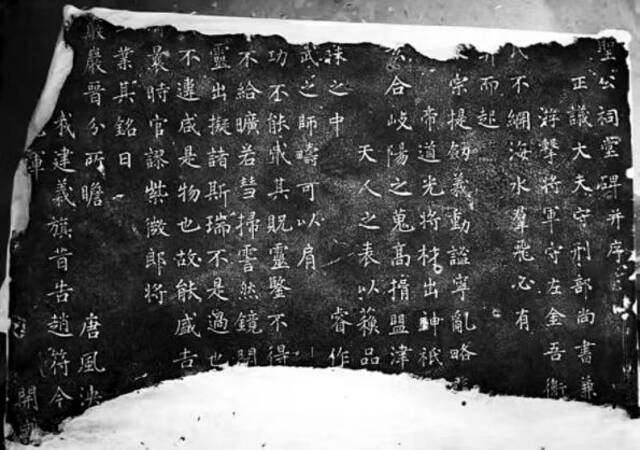 聖公祠堂碑并序
正議大夫守刑部尚書兼
游擊將軍守左金吾衛
不綱海水羣飛必有
而起
宗提劔義動謐寧亂略
帝道光將材出神祇
合岐陽之蒐高揖盟津
天人之表以蘋品
誅之中 睿作
武之師疇可以肩
功不能載其貺靈鑒不得
不給曠若彗掃雲然鏡開
靈出擬諸斯瑞不是過也
不違咸是物也故能感吉
最時官謬紫微郎將
業其銘曰
嚴嚴晉分所瞻 唐風泱
我建義旗昔告趙符今